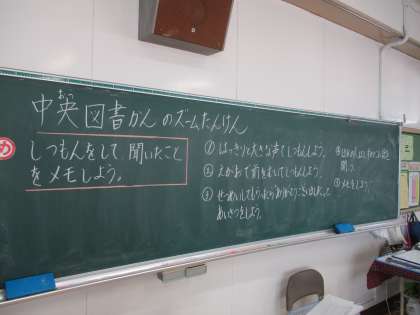 中央図書かんのズームたんけん
おう
め
しつもんをして、聞いたこと
をメモしよう。
① はっきりと大きな声でしつもんしよう。
② えがおで前をむいてしつもんしよう。
③ せつめいしてもらったら「ありがとうございました。」と
あいさつをしよう。
聞こう。
⑤ メモをしよう。
三